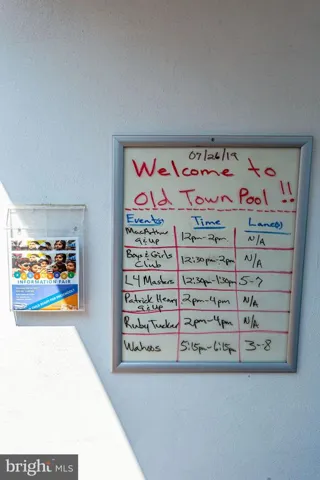 07/26/19
Welcome to
Old Town Pool !!
Events Time Lane(s)
MacArthur
9 & up 12pm-2pm N/A
Boys & Girls
Club 12:30pm-2pm N/A
L4 Masters 12:30pm-1:30pm 5-7
Patrick Henry
9 & up 2pm-4pm N/A
Ruby Tucker 2pm-4pm N/A
Wahoos 5:15pm-6:15pm 3-8
INFORMATION FAIR
bright MLS